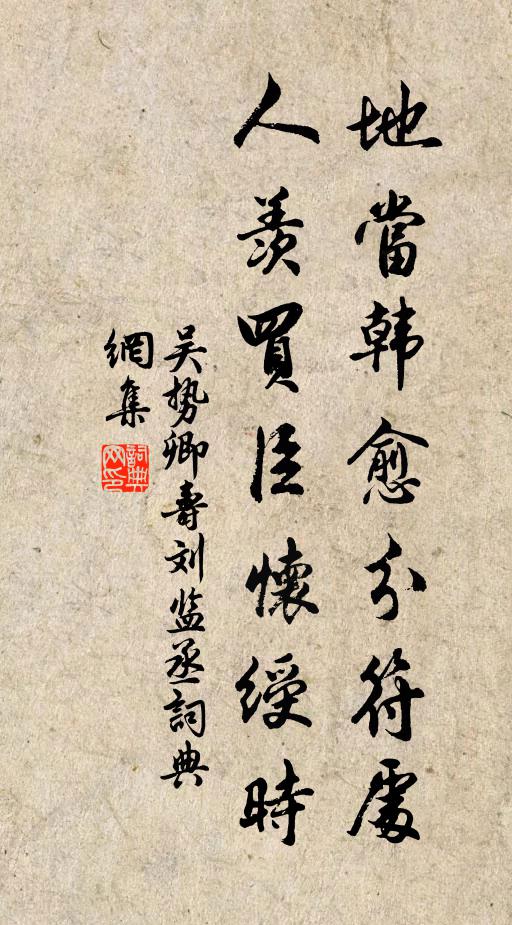 地當韩愈分符處
人羨買臣懷綬時
吴势卿壽刘监丞詞典
網集
詞典
网印